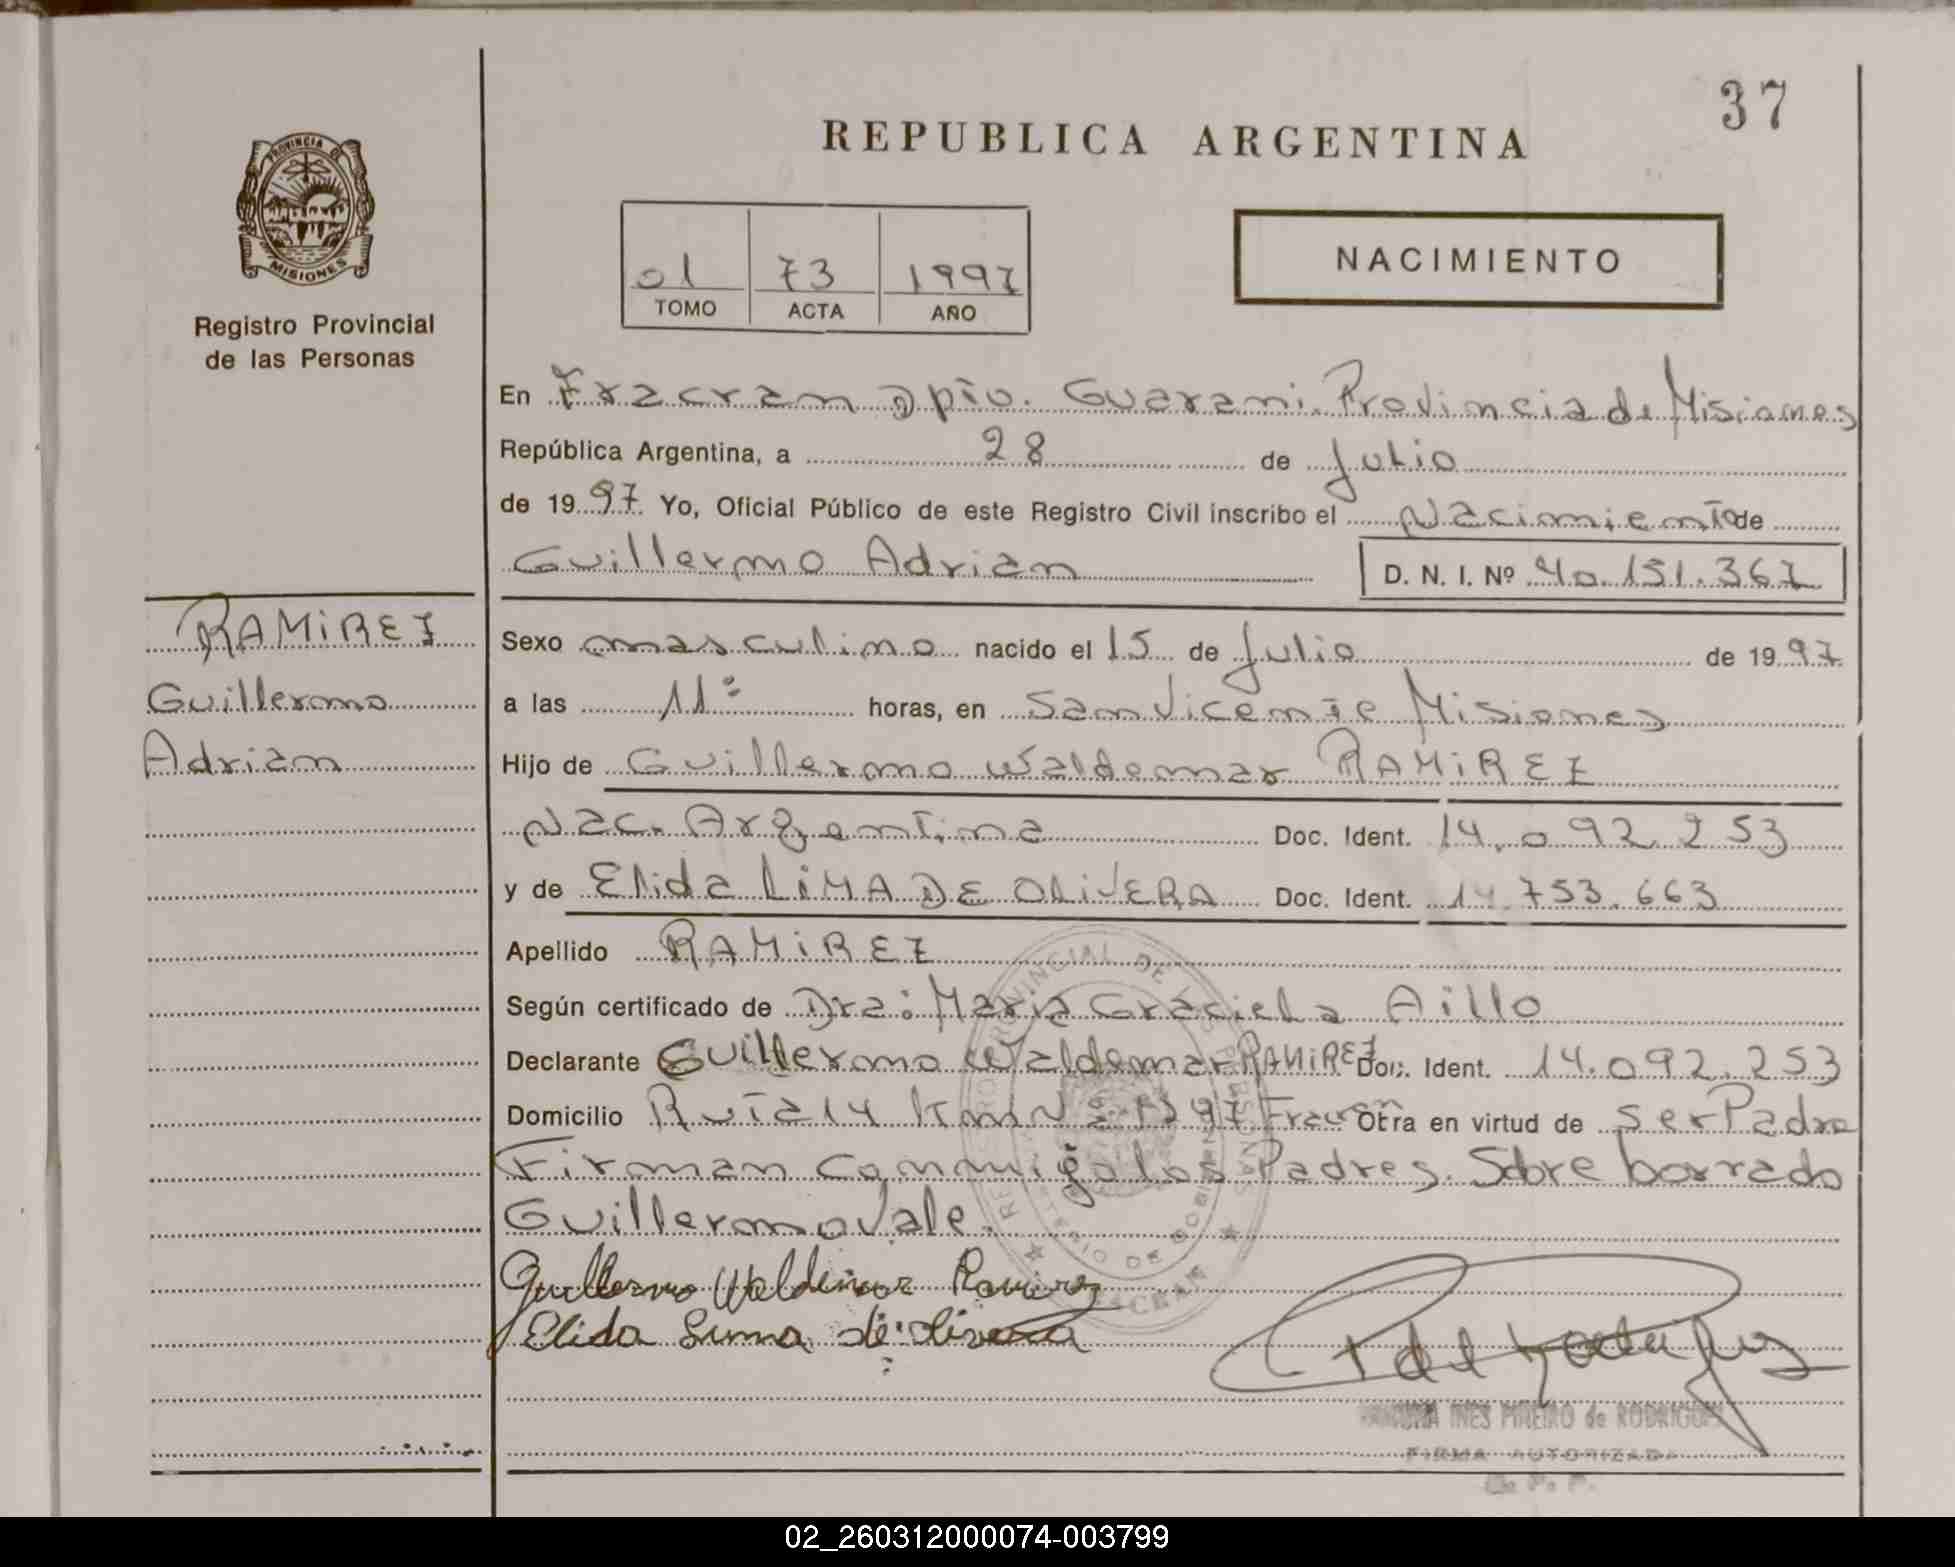 37
REPUBLICA ARGENTINA
PROVINCIA DE
MISIONES
Registro Provincial
de las Personas
01 73 1997
TOMO ACTA AÑO
NACIMIENTO
En Fracran Dpto. Guarani. Provincia de Misiones
República Argentina, a 28 de Julio
de 1997. Yo, Oficial Público de este Registro Civil inscribo el Nacimiento de
Guillermo Adrian D. N. I. Nº 40.151.367
RAMIREZ
Guillermo
Adrian
Sexo masculino nacido el 15 de Julio de 1997.
a las 11: horas, en San Vicente Misiones
Hijo de Guillermo Waldemar RAMIREZ
Nac. Argentina Doc. Ident. 14.092.253
y de Elida LIMA DE OLIVERA Doc. Ident. 14.753.663
Apellido RAMIREZ
Según certificado de Dra: Maria Graciela Aillo
Declarante Guillermo Waldemar RAMIREZ Doc. Ident. 14.092.253
Domicilio Ruta 14 Km Nº 1297 Fracran Otra en virtud de ser Padre
Firman conmigo los Padres. Sobre borrado
Guillermo Vale.
Guillermo Waldemar Ramirez
Elida Lima de Olivera
INES PIÑEIRO de RODRIGUES
FIRMA AUTORIZADA
02_260312000074-003799